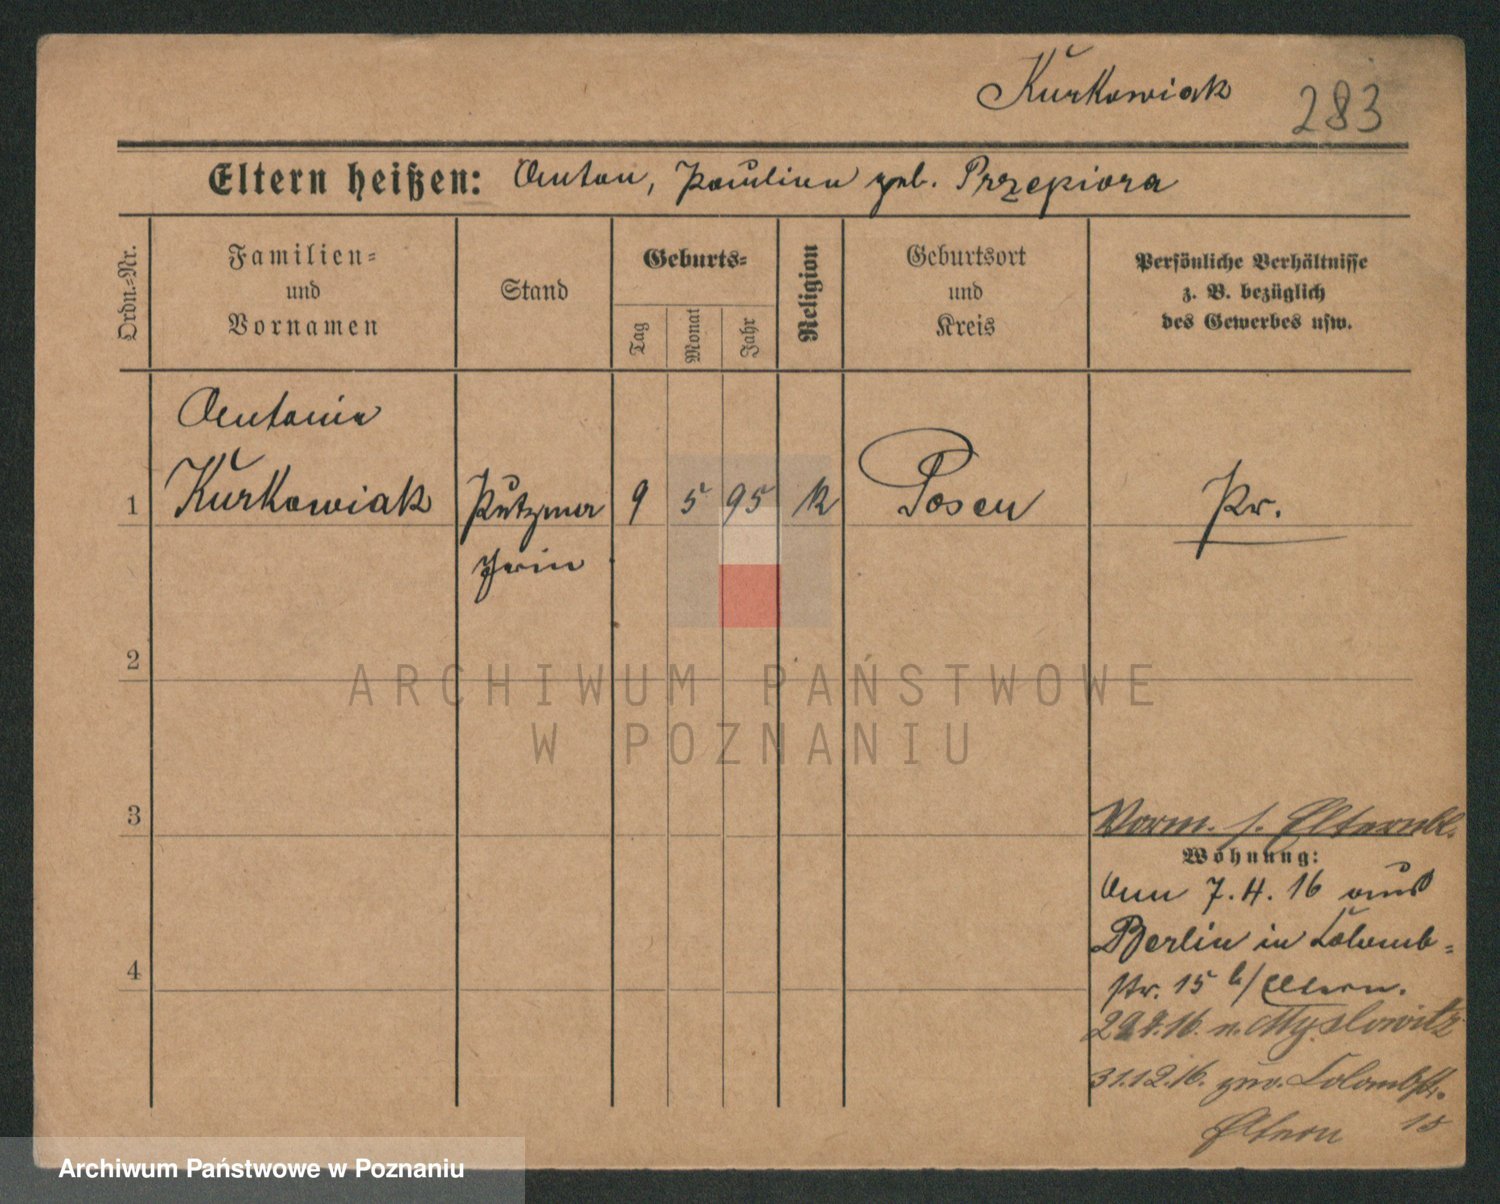 Kurkowiak 283
Eltern heißen: Anton, Paulina geb. Przepiora
Ordn.-Nr.
Familien-
und
Vornamen
Stand
Geburts-
Tag
Monat
Jahr
Religion
Geburtsort
und
Kreis
Persönliche Verhältnisse
z. B. bezüglich
des Gewerbes usw.
Antonie
1 Kurkowiak Putzma 9 5 95 k Posen Pr.
cherin
2
ARCHIWUM PAŃSTWOWE
W POZNANIU
3
Vorm. s. Elternbl.
Wohnung:
Am 7.4.16 aus
Berlin in Colomb-
str. 15 b/Eltern.
4
29.7.16. n. Myslowitz
31.12.16. zur. Colombstr.
Eltern 15
Archiwum Państwowe w Poznaniu